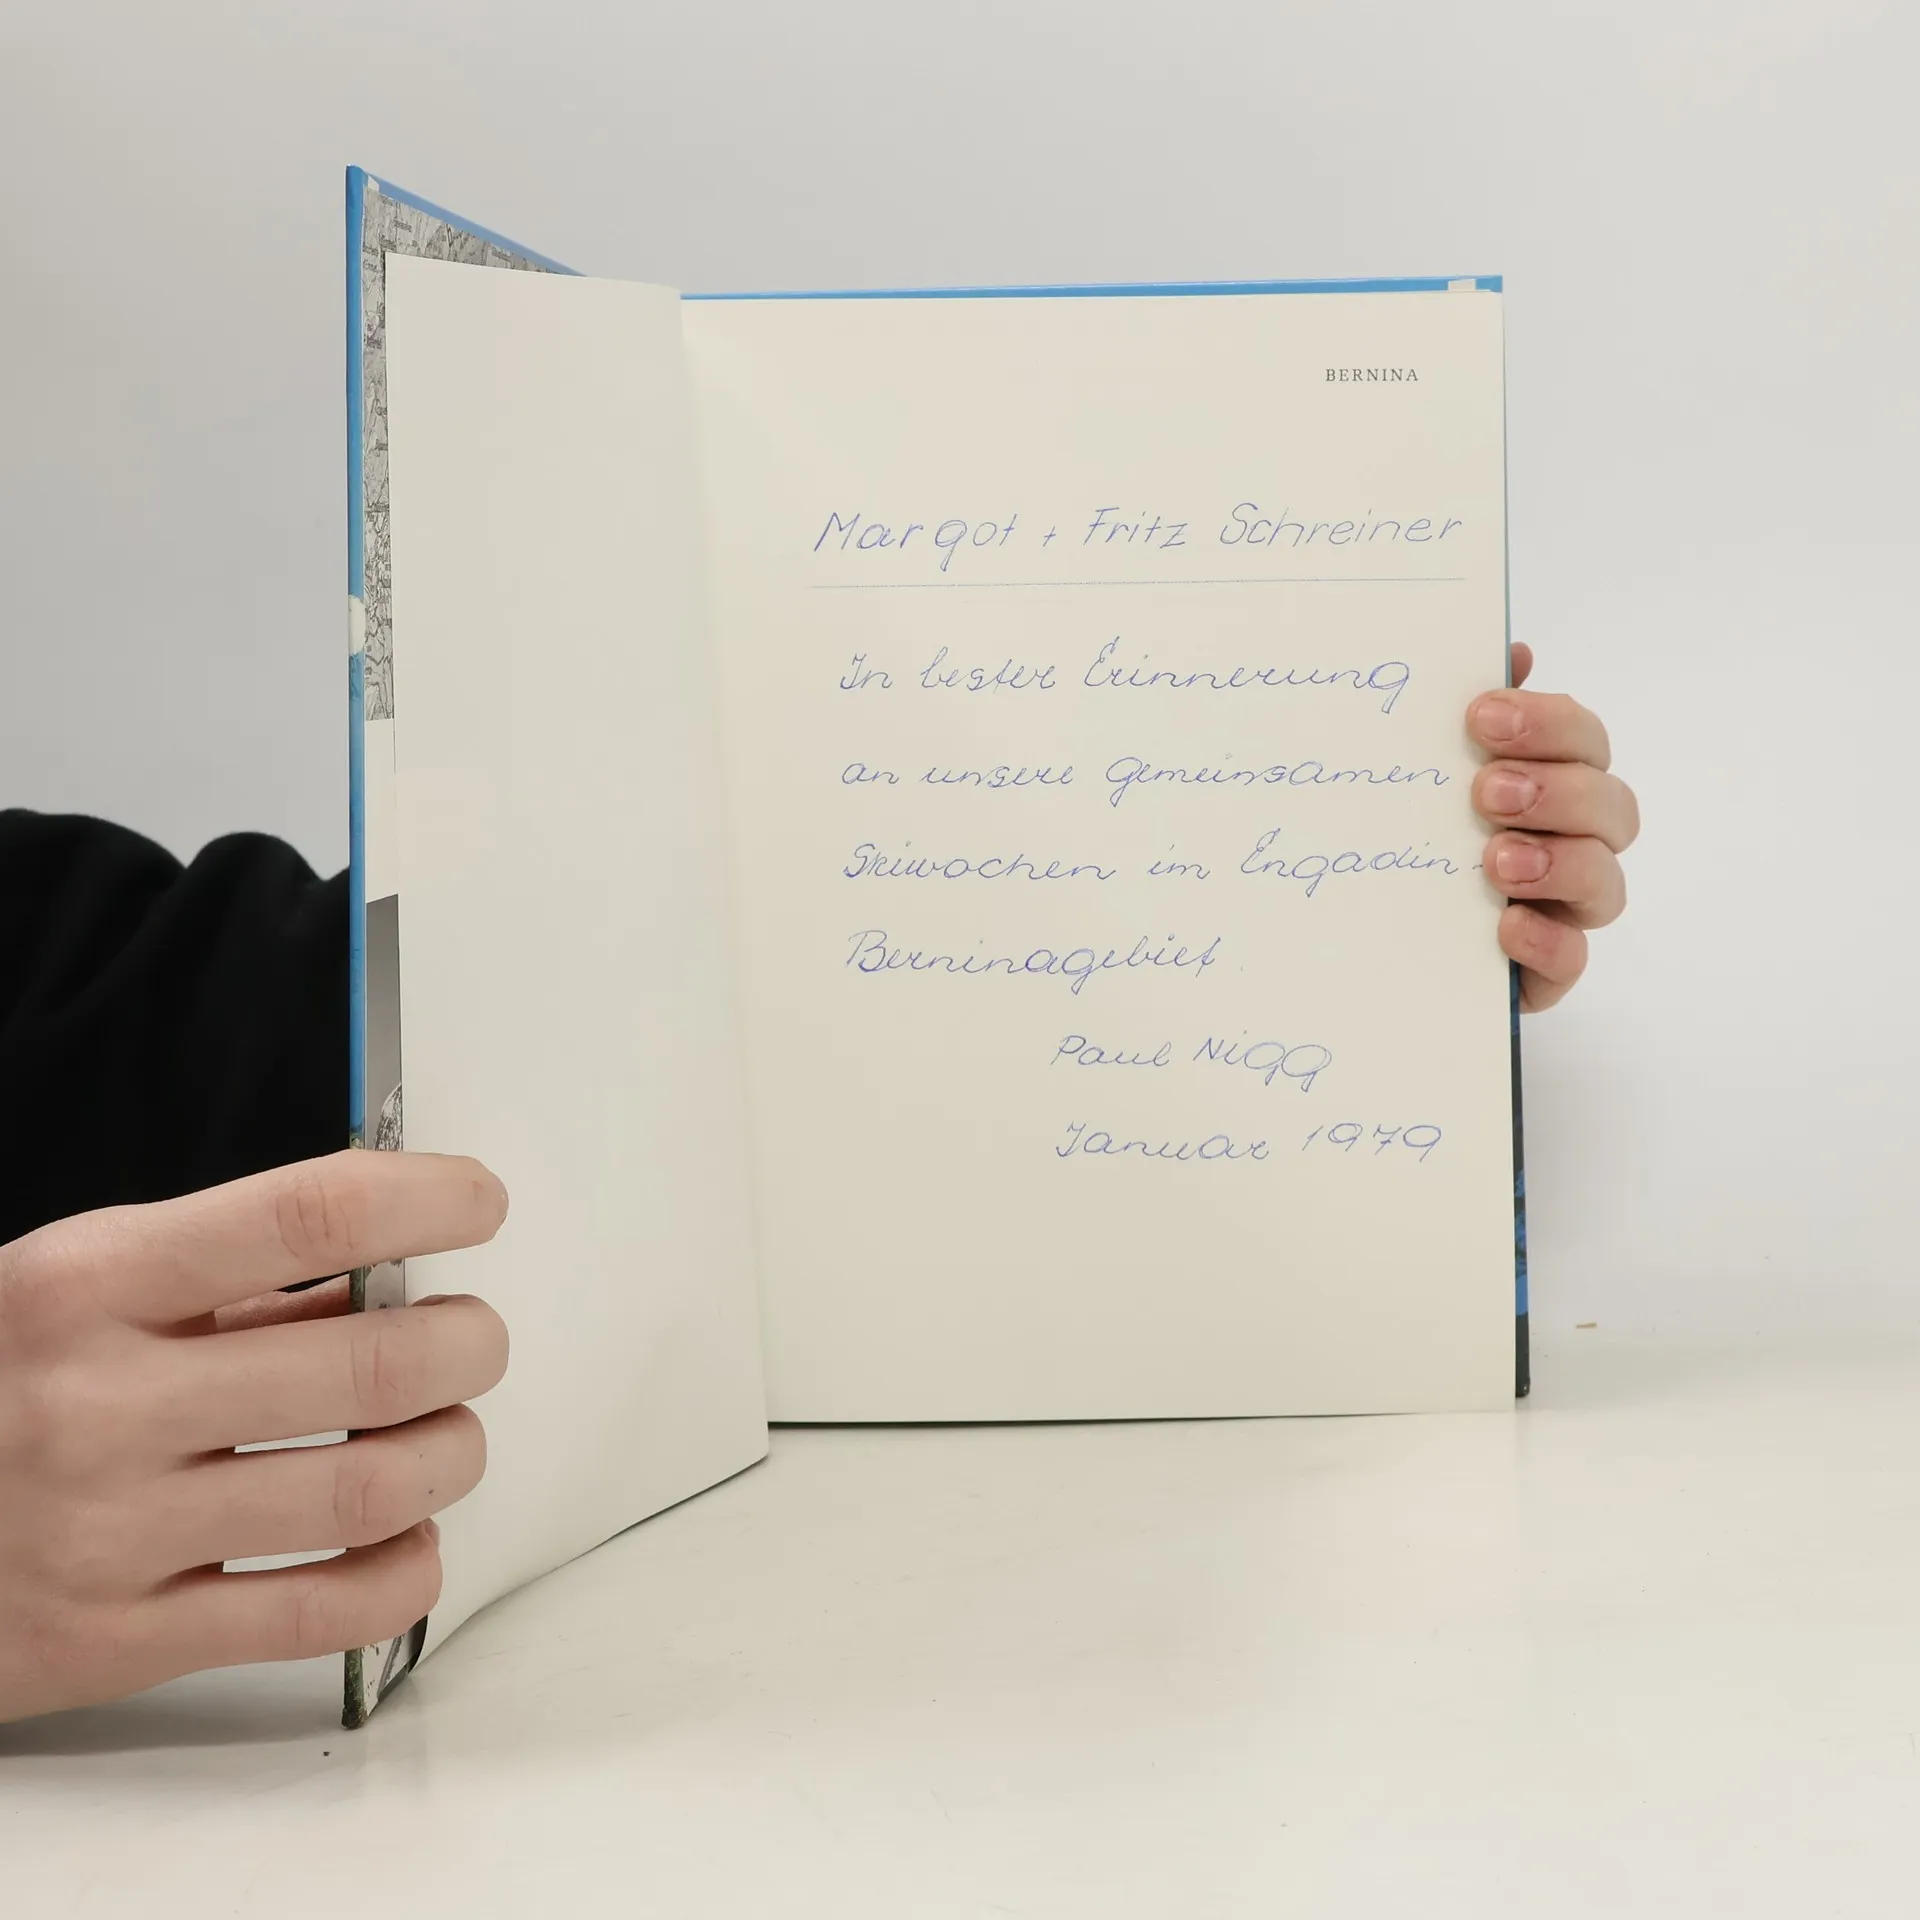 BERNINA
Margot + Fritz Schreiner
In bester Erinnerung
an unsere gemeinsamen
Skiwochen im Engadin-
Berninagebiet.
Paul Nigg
Januar 1979